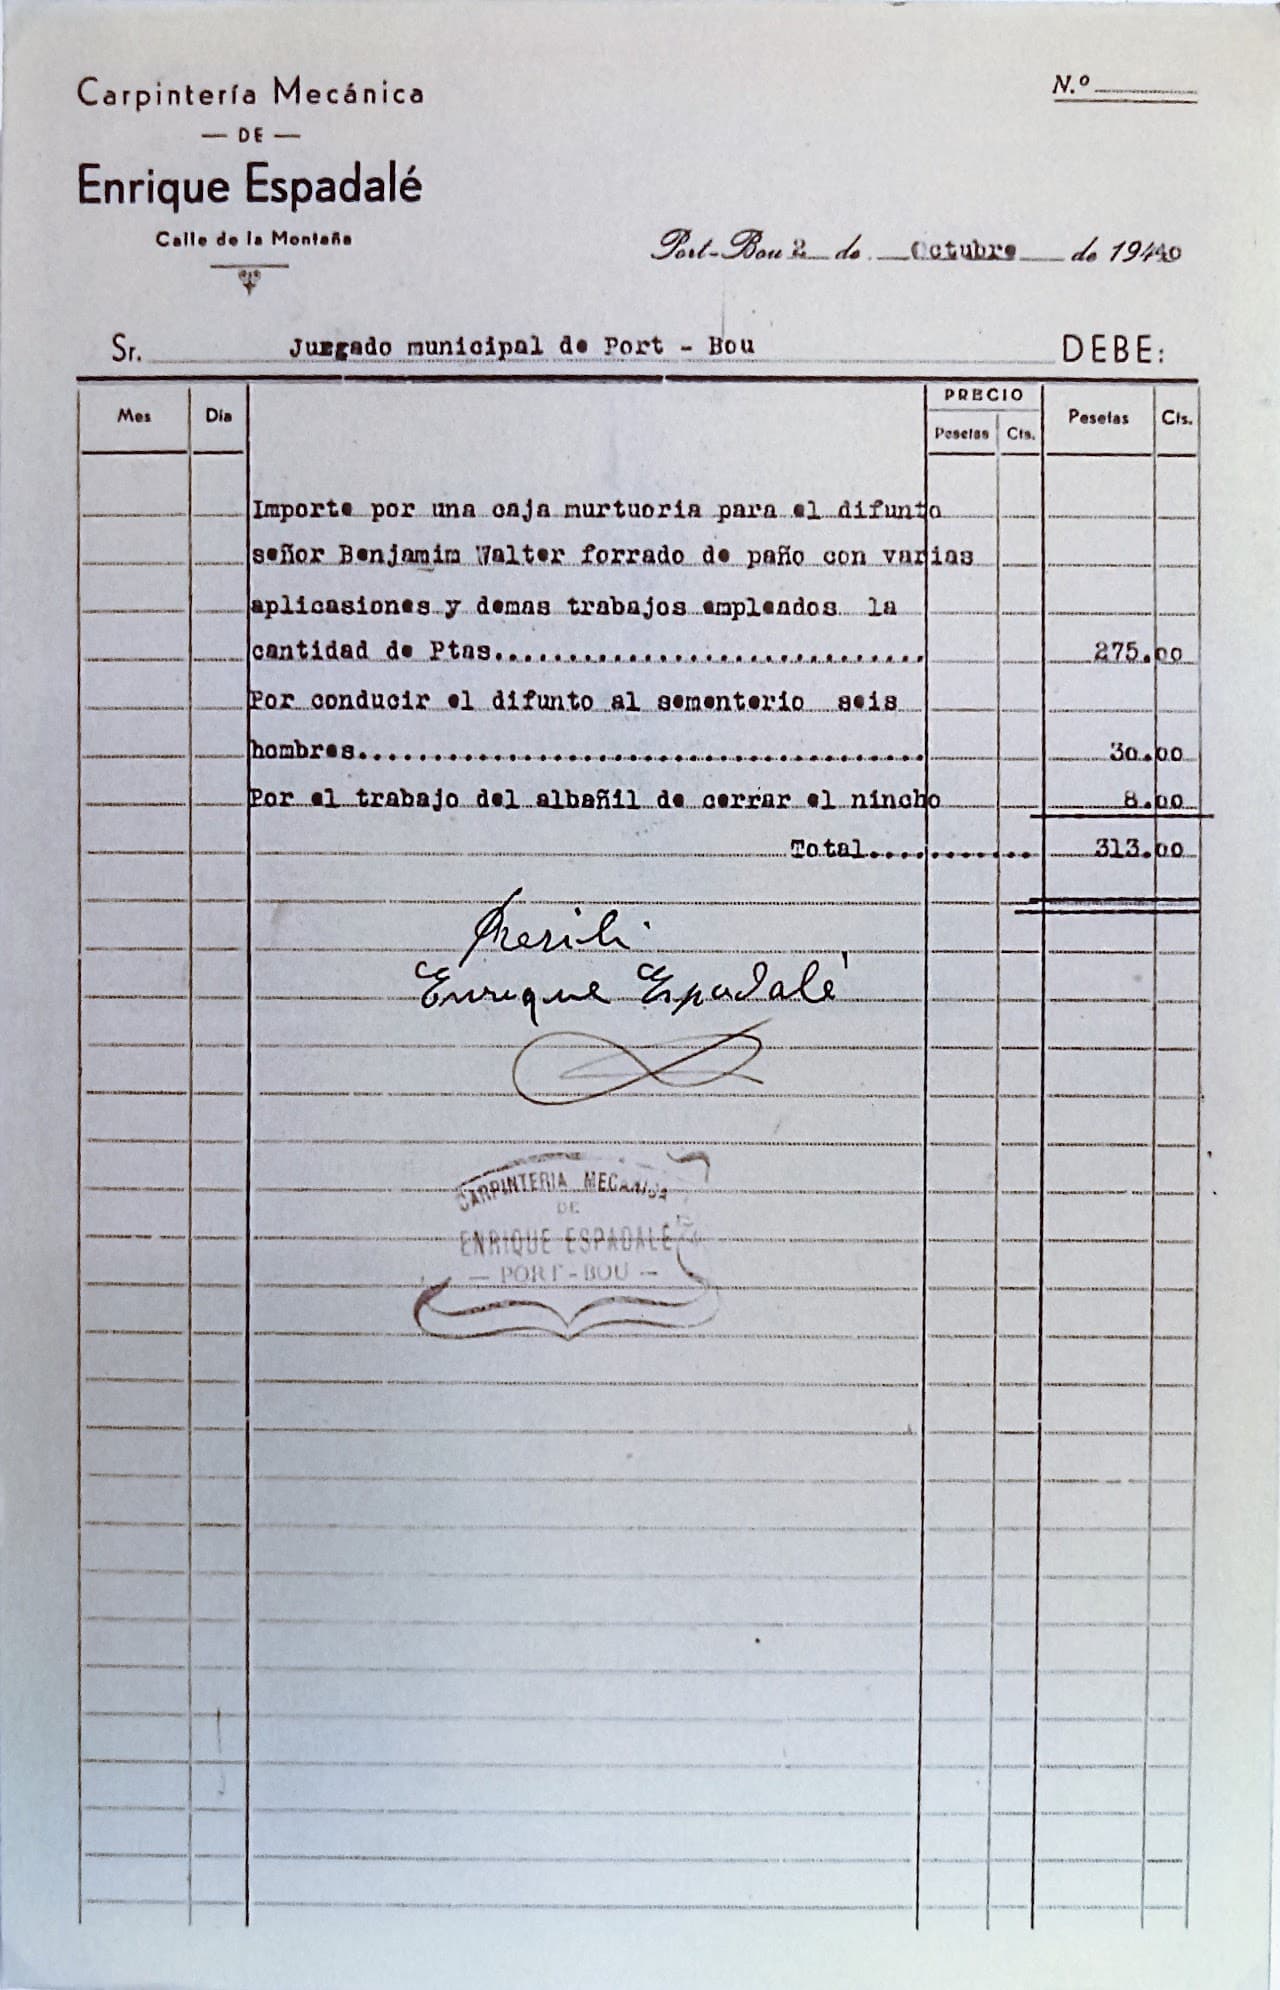 Carpintería Mecánica
— DE —
Enrique Espadalé
Calle de la Montaña
N.º
Port-Bou 2 de Octubre de 1940
Sr. Juzgado municipal de Port - Bou DEBE:
Mes Día PRECIO Pesetas Cts. Pesetas Cts.
Importe por una caja murtuoria para el difunto
señor Benjamim Walter forrado de paño con varias
aplicasiones y demas trabajos empleados la
cantidad de Ptas.............................. 275.00
Por conducir el difunto al sementerio seis
hombres....................................... 30.00
Por el trabajo del albañil de cerrar el nincho 8.00
Total........... 313.00
Enrique Espadalé
CARPINTERIA MECANICA
DE
ENRIQUE ESPADALÉ
— PORT-BOU —